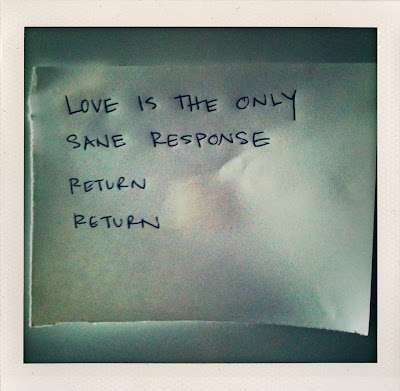 LOVE IS THE ONLY
SANE RESPONSE
RETURN
RETURN